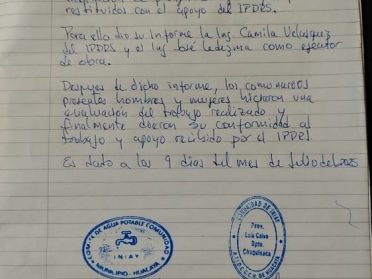 restituidos con el apoyo del IPDRS.
Para ello dio su informe la Ing Camila Velasquez
del IPDRS y el Ing José Ledezma como ejecutor
de obra.
Despues de dicho informe, los comunarios
presentes hombres y mujeres hicieron una
evaluación del trabajo realizado y
finalmente dieron su conformidad al
trabajo y apoyo recibido por el IPDRS
Es dado a los 9 dias del mes de Julio del 2025
AGUA POTABLE COMUNIDAD
INIAY
MUNICIPIO - HUALAYA
COMUNIDAD DE INIAY
Prov.
Luis Calvo
Dpto.
Chuquisaca